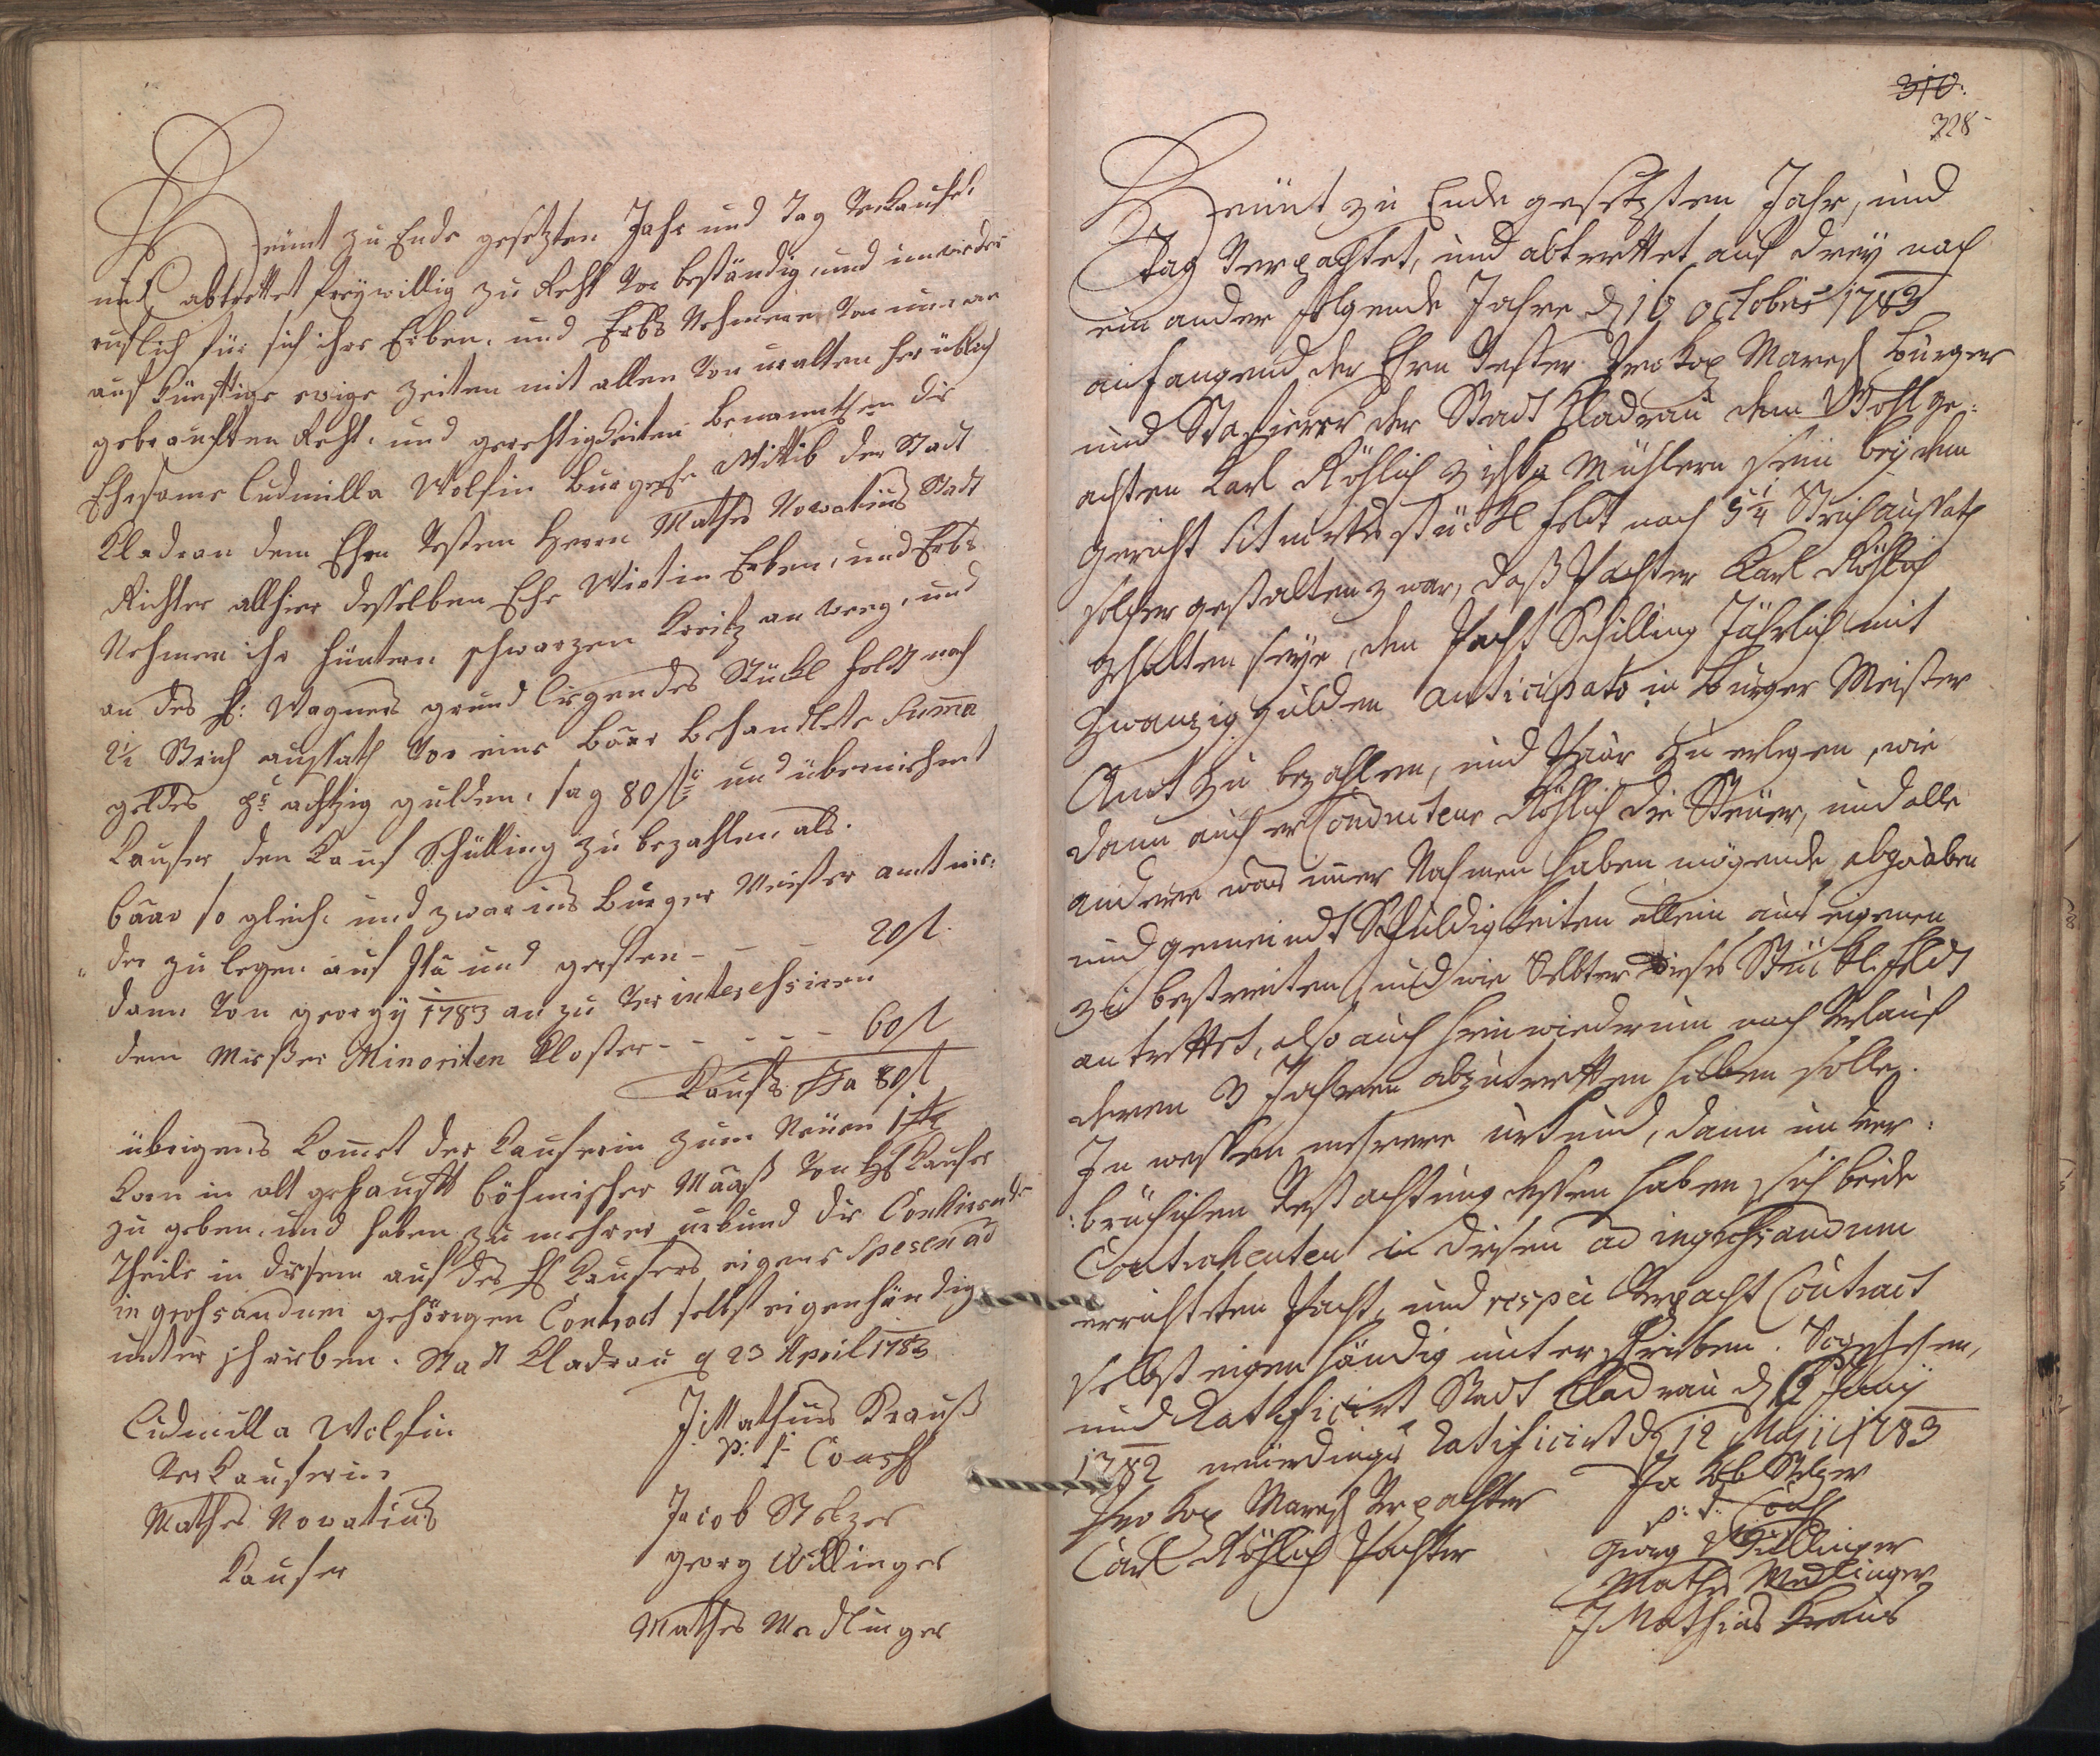 Heünt zu Ende gesetzten Jahr und Tag Verkaufet
und abtrettet freywillig zu Recht Vor beständig und unwieder
ruflich für sich ihre Erben, und Erbs Nehmere Von nun an
auf künftige ewige Zeiten mit allen Von uralten her üblich
gebrauchten Recht- und gerechtigkeiten benanntsen die
Ehrsame Ludmilla Wolfin burgerse Wittib der Stadt
Kladrau dem Ehrn Vesten Herrn Mathes Novatius Stadt
Richter allhier desselben Ehe Wirtin Erben, und Erbs
Nehmen ihr hüntern schwarzen Kreitz an weeg, und
an des H: Wagners grund liegendes Stückl feldt nach
2½ Strich aussath Vor eine baar behandlete Summa
geldes pr achtzig gulden, sag 80 fl und übernimmt
Kaufer den Kauf Schülling zu bezahlen als.
baar so gleich und zwar ins burger Meister amt nie-
der zu legen auf und gersten - - - 20 fl.
dann Von georgy 1783 an zu Verinteressiren
dem Mießer Minoriten Kloster - - - - 60 fl
Kaufs Sa 80 fl
übrigens kommet der Kauferin zum Neüen 1
korn in alt gehauft böhmischer Maaß Von H Kaufer
zu geben, und haben zu mehrer urkund die Contirende
Theile in diesem auf des H Kaufers eigene Spesen ad
in grossandum gehörigen Contract selbst eigenhändig
unterschrieben. Stadt Kladrau d 23 April 1783
Ludmilla Wolfin
Verkauferin
Mathes Novatius
Kaufer
J: Mathias Krauß
p: t: Coass
Jacob Stelzer
georg Willinger
Mathes Medlinger
310.
328
Heünt zu Ende gesetzten Jahr, und
Tag Verpachtet, und abtrettet auf drey nach
ein ander folgende Jahre d 16 octobris 1783
anfangend der Ehrn Vester Prokop Maresch burger
und Stafierer der Stadt Kladrau dem Wohlge-
achten Karl Röhlich Müllern sein bey dem
gericht situirtes stückl feldt nach 5¼ Strich aussath
solcher gestalten zwar, daß Pachter Karl Röhlich
gehalten seye, den Pacht Schilling Jährlich mit
Zwanzig gulden anticipato in burger Meister
Amt zu bezahlen, und baar zu erlegen, wie
dann auch er Conducteur Röhlich die Steüer, und alle
andere was imer Nahmen haben mögende abgaaben
und gemeindt Schuldigkeiten allein aus eigenen
zu bestreiten, und wie Selbter dieses Stückl feldt
antrettet, also auch hinwiederum nach Verlauf
deren 3 Jahren abzutretten haben solle.
In wessen mehrere urkund, dann unver:
:brüchichen Vestachtung dessen haben sich beide
Contrahenten in diesen ad ingrossandum
errichteten Pacht, und respeü Verpacht Contract
selbst eigen händig unterschrieben. So geschehen,
und Ratificirt Stadt Kladrau d 6 Juny
1782 neüerdings Ratificirt d 12 Maji 1783
Prokop Maresch Verpachter
Carl Röhlich Pachter
Jakob Stelzer
p: t: Coass
georg Willinger
Mathes Medlinger
J Mathias Kraus